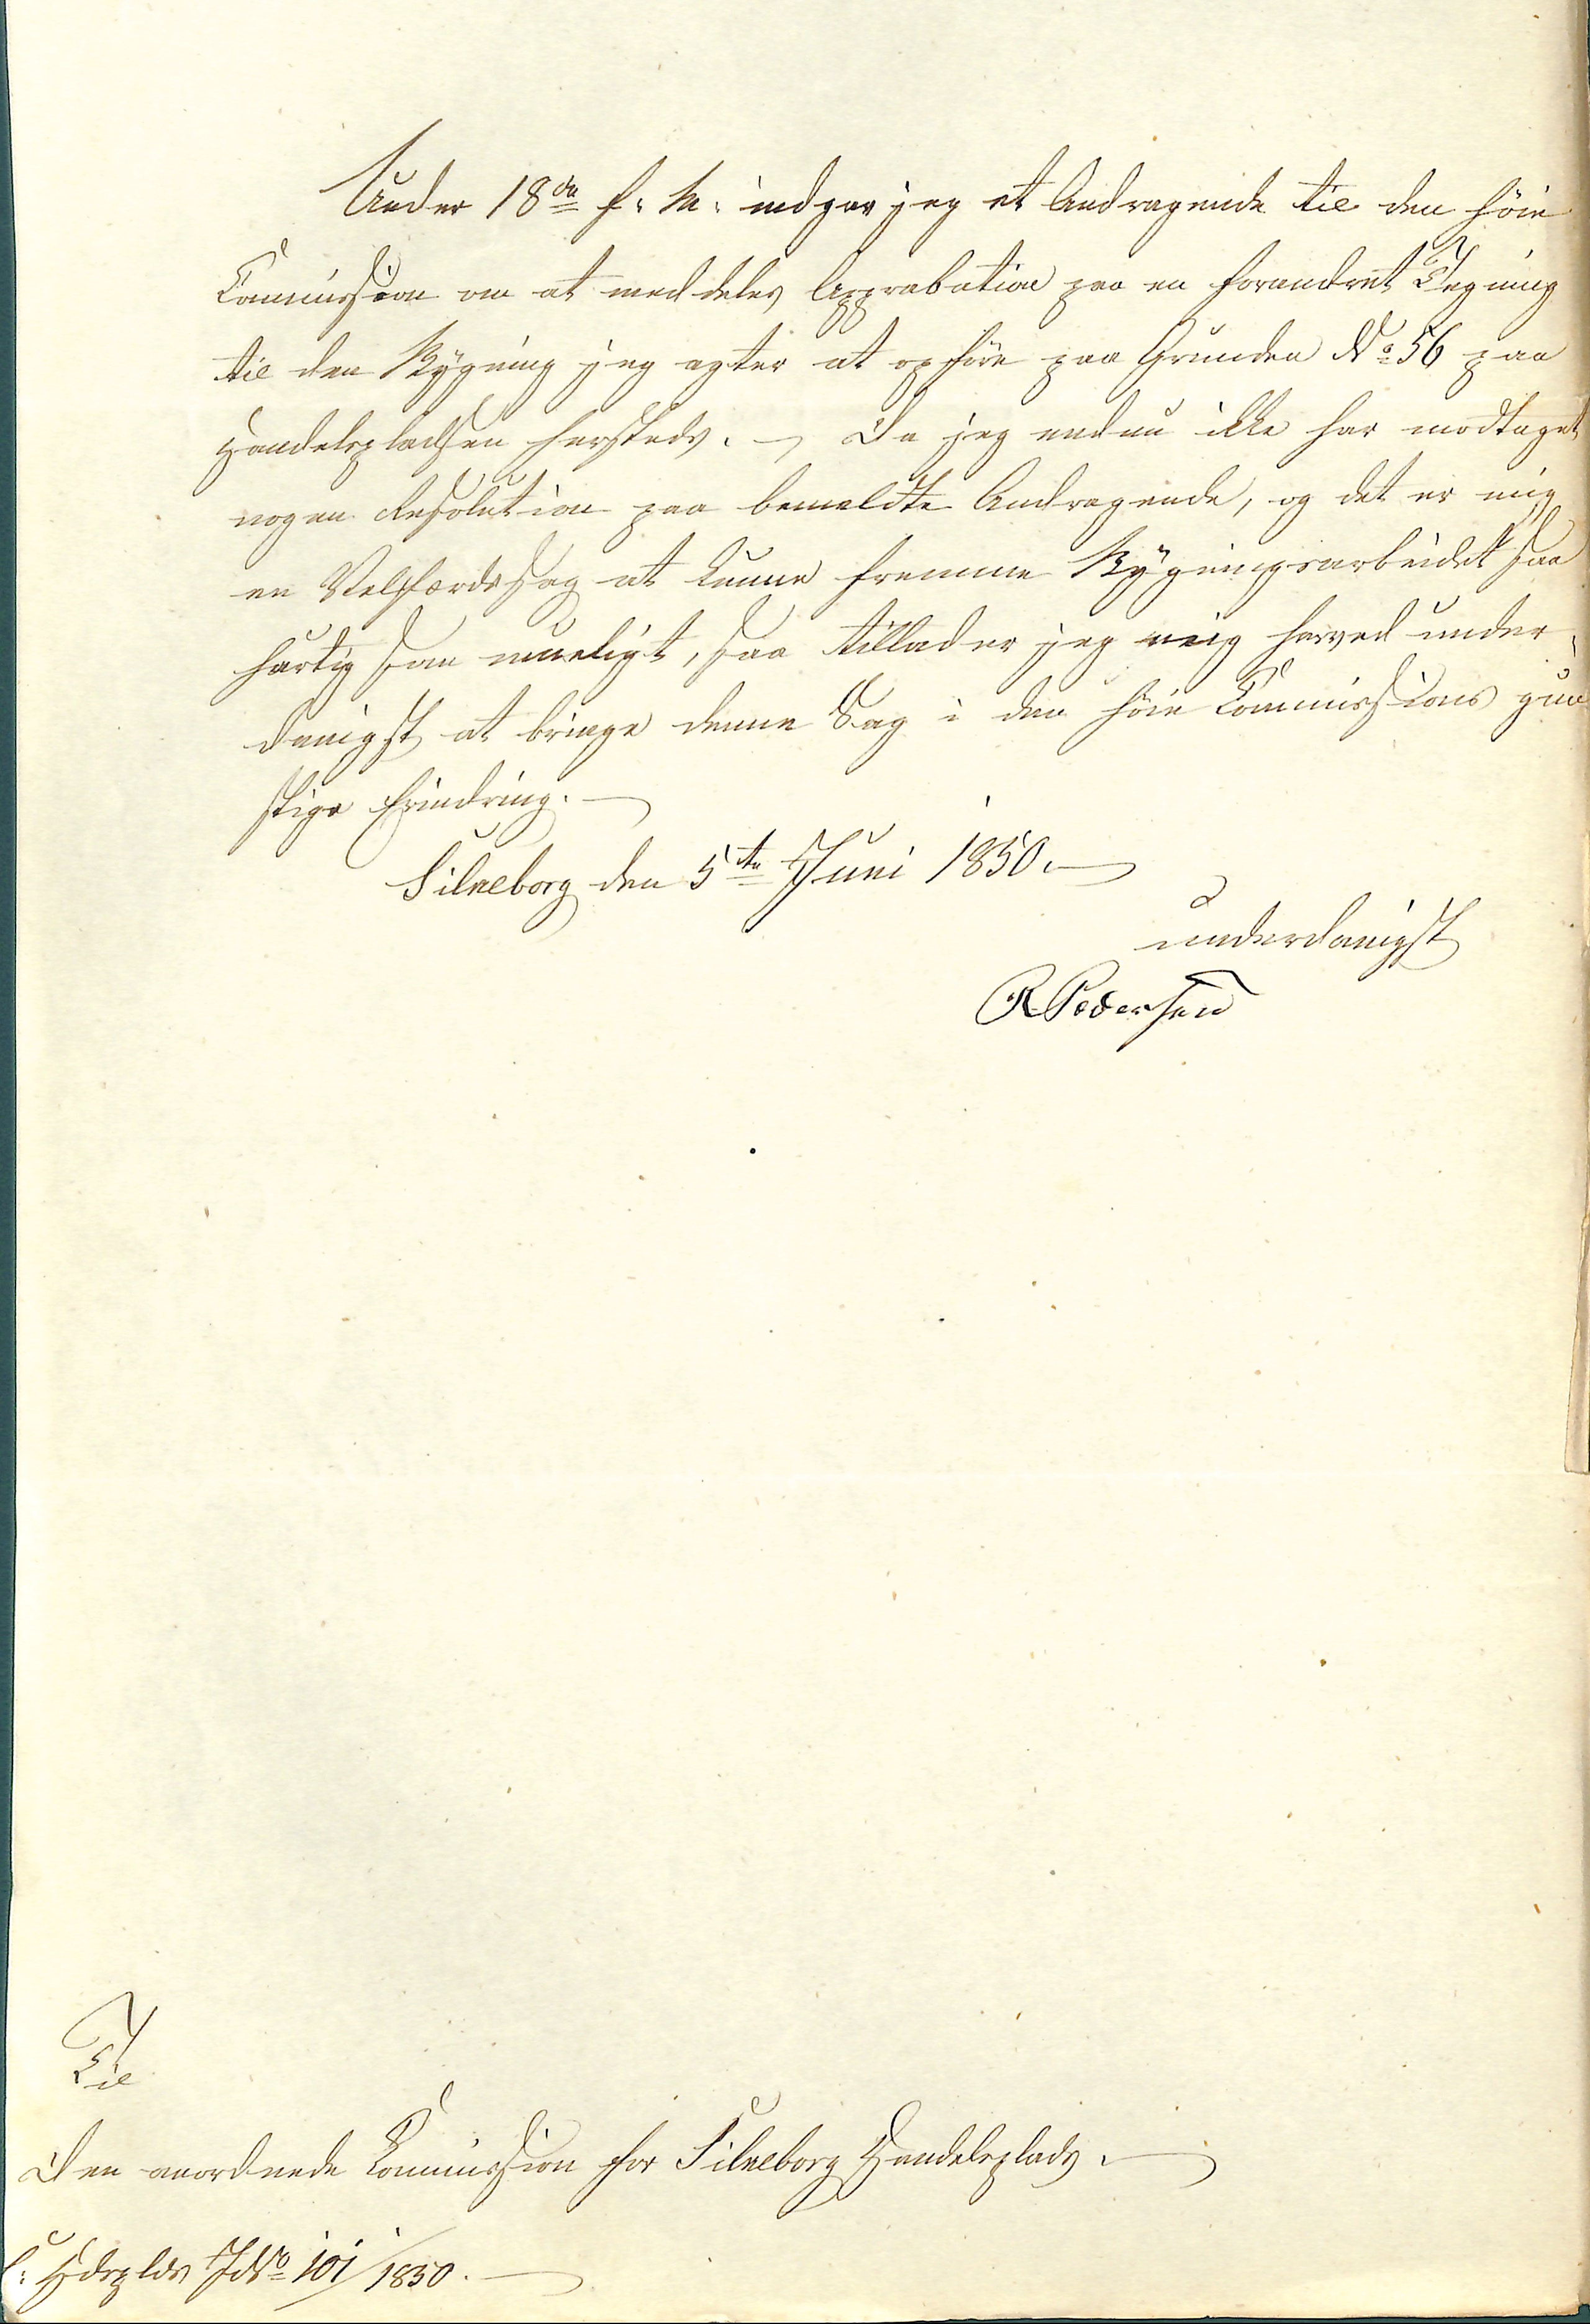 Under 18de f. M. indgav jeg et Andragende til den høie
Commission om at meddeles Approbation paa en forandret Tegning
til den Bygning jeg agter at opføre paa Grunden No 56 paa
Handelspladsen hersteds. — Da jeg endnu ikke har modtaget
nogen Resolution paa bemeldte Andragende, og det er mig
en Velfærdssag at kunne fremme Bygningsarbeidet saa
hurtig som mueligt, saa tillader jeg mig herved under-
danigst at bringe denne Sag i den høie Commissions gun
stige Erindring. —
Silkeborg den 5te Juni 1850. —
underdanigst
R Pedersen
Til
Den anordnede Commission for Silkeborg Handelsplads. —
S. Hdsplds J No 101/1850. —